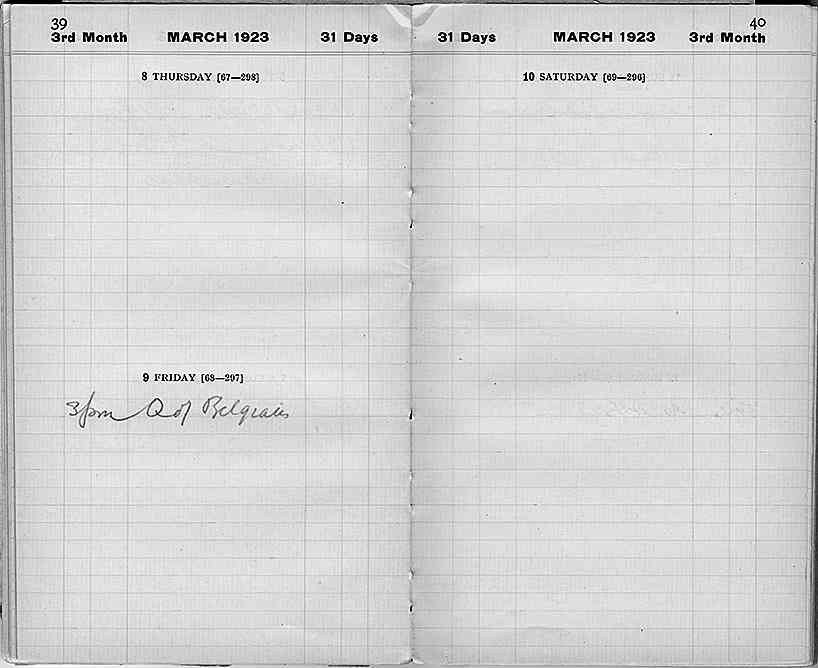 39
3rd Month MARCH 1923 31 Days
8 THURSDAY [67—298]
9 FRIDAY [68—297]
3pm Q of Belgians
40
31 Days MARCH 1923 3rd Month
10 SATURDAY [69—296]